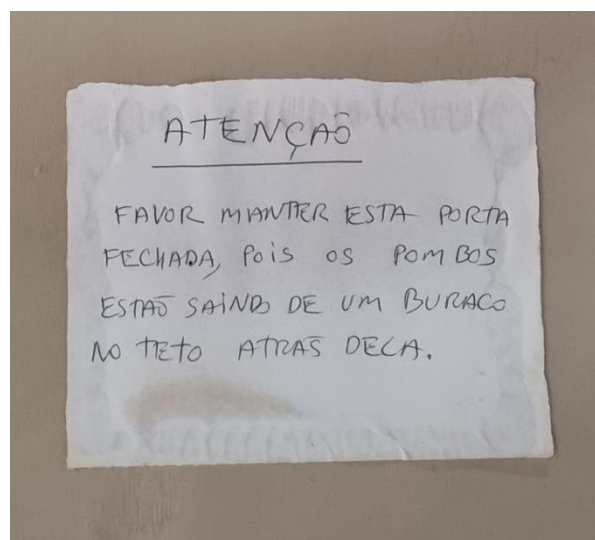 ATENÇAÕ
FAVOR MANTER ESTA PORTA
FECHADA, POiS OS POMBOS
ESTAÕ SAiNDO DE UM BURACO
NO TETO ATRÁS DELA.